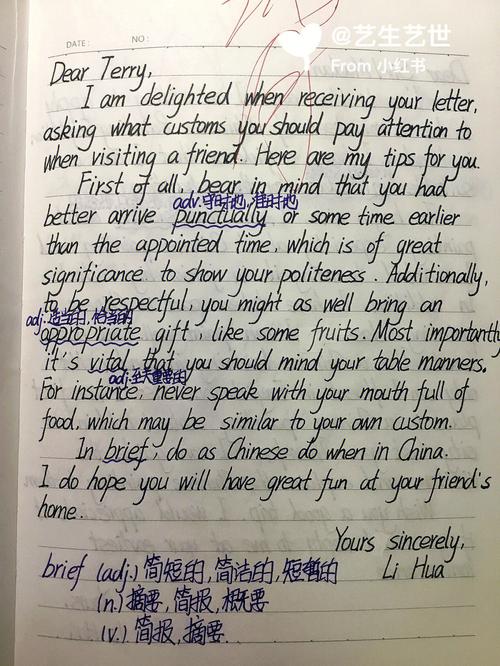 @艺生艺世
From 小红书
DATE: NO:
Dear Terry,
I am delighted when receiving your letter,
asking what customs you should pay attention to
when visiting a friend. Here are my tips for you.
First of all, bear in mind that you had
adv.守时地,准时地
better arrive punctually or some time earlier
than the appointed time, which is of great
significance to show your politeness. Additionally,
to be respectful, you might as well bring an
adj.适当的,恰当的
appropriate gift, like some fruits. Most importantly
it's vital that you should mind your table manners.
adj.至关重要的
For instance, never speak with your mouth full of
food, which may be similar to your own custom.
In brief, do as Chinese do when in China.
I do hope you will have great fun at your friend's
home.
Yours sincerely,
Li Hua
brief (adj.) 简短的,简洁的,短暂的
(n.) 摘要,简报,概要
(v.) 简报,摘要